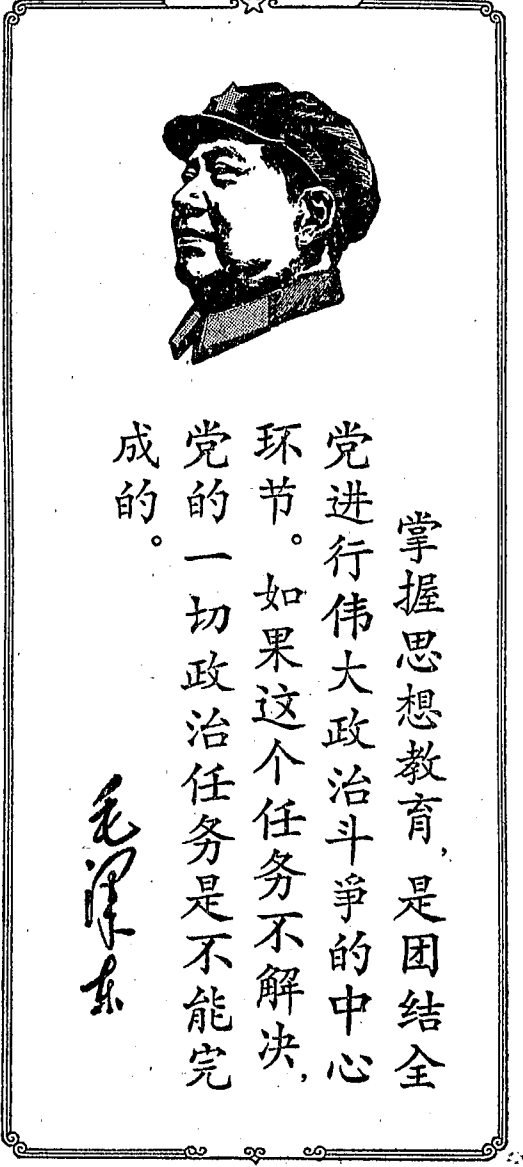 掌握思想教育，是团结全
党进行伟大政治斗争的中心
环节。如果这个任务不解决，
党的一切政治任务是不能完
成的。
毛泽东